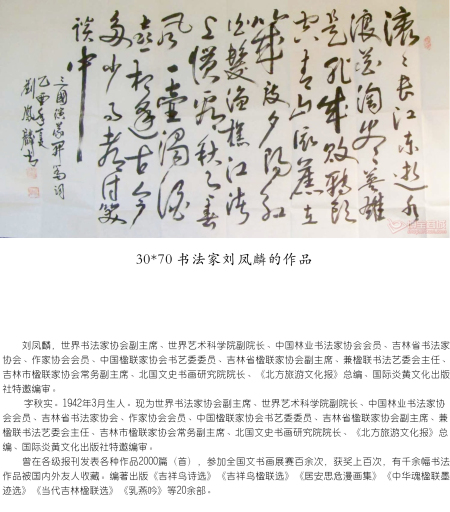 滚滚长江东逝水
浪花淘尽英雄
是非成败转头
空青山依旧在
几度夕阳红
白髮渔樵江渚
上惯看秋月春
风一壶浊酒
喜相逢古今
多少事都付笑
谈中
三國演义开篇词
乙酉年夏
劉鳳麟书
30*70 书法家刘凤麟的作品
刘凤麟，世界书法家协会副主席、世界艺术科学院副院长、中国林业书法家协会会员、吉林省书法家
协会、作家协会会员、中国楹联家协会书艺委委员、吉林省楹联家协会副主席、兼楹联书法艺委会主任、
吉林市楹联家协会常务副主席、北国文史书画研究院院长、《北方旅游文化报》总编、国际炎黄文化出版
社特邀编审。
字秋实。1942年3月生人。现为世界书法家协会副主席、世界艺术科学院副院长、中国林业书法家协
会会员、吉林省书法家协会、作家协会会员、中国楹联家协会书艺委委员、吉林省楹联家协会副主席、兼
楹联书法艺委会主任、吉林市楹联家协会常务副主席、北国文史书画研究院院长、《北方旅游文化报》总
编、国际炎黄文化出版社特邀编审。
曾在各级报刊发表各种作品2000篇（首），参加全国文书画展赛百余次，获奖上百次，有千余幅书法
作品被国内外友人收藏。编著出版《吉祥鸟诗选》《吉祥鸟楹联选》《居安思危漫画集》《中华魂楹联墨
迹选》《当代吉林楹联选》《乳燕吟》等20余部。